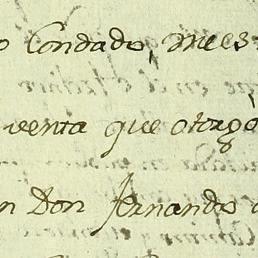 o Condado, mees
venta que otorgò
n Don Fernando